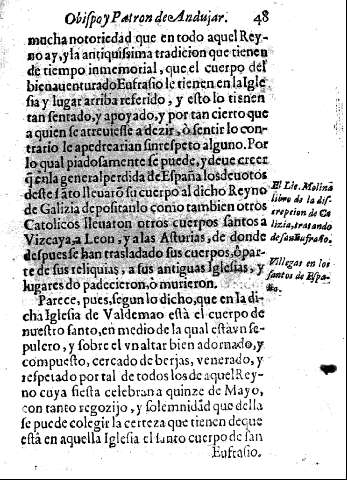 Obispo y Patron de Andujar. 48
mucha notoriedad que en todo aquel Rey-
no ay, y la antiquissima tradicion que tienen
de tiempo inmemorial, que el cuerpo del
bienauenturado Eufrasio le tienen en la Igle
sia y lugar arriba referido, y esto lo tienen
tan sentado, y apoyado, y por tan cierto que
a quien se atreuiesse a dezir, ò sentir lo con-
trario le apedrearian sin respeto alguno. Por
lo qual piadosamente se puede, y deue creer
q̃ en la general perdida de España los deuotos
deste santo lleuarõ su cuerpo al dicho Reyno
de Galizia depositanlo como tambien otros
Catolicos lleuaron otros cuerpos santos a
Vizcaya, a Leon, y a las Asturias, de donde
despues se han trasladado sus cuerpos, ò par-
te de sus reliquias, a sus antiguas Iglesias, y
lugares do padecieron, ò murieron.
Parece, pues, segun lo dicho, que en la di-
cha Iglesia de Valdemao està el cuerpo de
nuestro santo, en medio de la qual està vn se-
pulcro, y sobre el vn altar bien adornado, y
compuesto, cercado de berjas, venerado, y
respetado por tal de todos los de aquel Rey-
no cuya fiesta celebran a quinze de Mayo,
con tanto regozijo, y solemnidad que della
se puede colegir la certeza que tienen de que
està en aquella Iglesia el santo cuerpo de san
Eufrasio.
El Lic. Molina
libro de la dis-
crepcion de Ga
lizia, tratando
de san Eufrasio.
Villegas en los
santos de Espa-
ña.